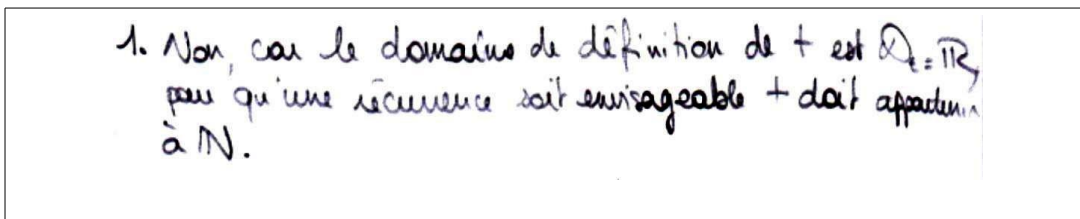 1. Non, car le domaine de définition de t est D_t = ℝ,
pour qu'une récurrence soit envisageable t doit appartenir
à ℕ.